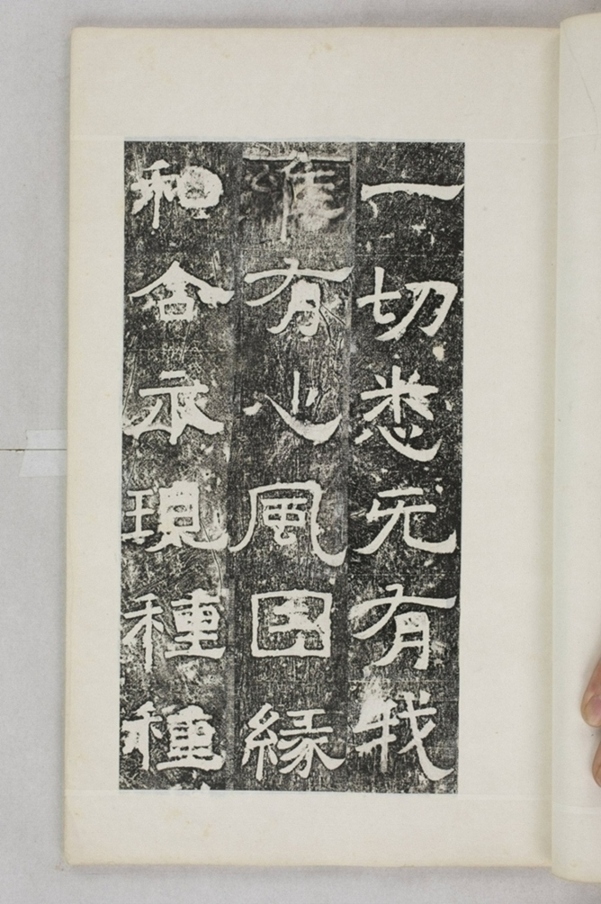 一切悉无有我
唯有心風因緣
和合示現種種